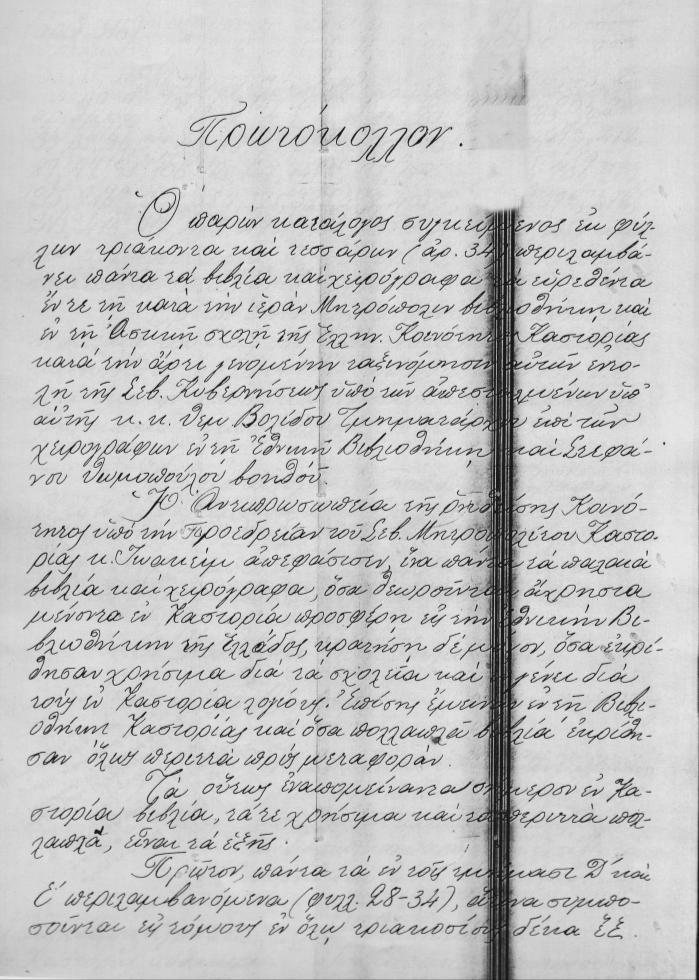 Πρωτόκολλον.
Ὁ παρὼν κατάλογος συγκείμενος ἐκ φύλ-
λων τριάκοντα καὶ τεσσάρων (ἀρ. 34) περιλαμβά-
νει πάντα τὰ βιβλία καὶ χειρόγραφα τὰ εὑρεθέντα
ἔν τε τῇ κατὰ τὴν ἱερὰν Μητρόπολιν βιβλιοθήκῃ καὶ
ἐν τῇ Ἀστικῇ σχολῇ τῆς Ἑλλην. Κοινότητος Καστορίας
κατὰ τὴν ἄρτι γενομένην ταξινόμησιν αὐτῶν ἐντο-
λῇ τῆς Σεβ. Κυβερνήσεως ὑπὸ τῶν ἀπεσταλμένων ὑπ'
αὐτῆς κ. κ. Θεμ Βολίδου Τμηματάρχου ἐπὶ τῶν
χειρογράφων ἐν τῇ Ἐθνικῇ Βιβλιοθήκῃ καὶ Στεφά-
νου Θωμοπούλου βοηθοῦ.
Ἡ Ἀντιπροσωπεία τῆς ῥηθείσης Κοινό-
τητος ὑπὸ τὴν Προεδρείαν τοῦ Σεβ. Μητροπολίτου Καστο-
ρίας κ. Ἰωακεὶμ ἀπεφάσισεν, ἵνα πάντα τὰ παλαιὰ
βιβλία καὶ χειρόγραφα, ὅσα θεωροῦνται ἄχρηστα
μένοντα ἐν Καστορίᾳ προσφέρῃ εἰς τὴν Ἐθνικὴν Βι-
βλιοθήκην τῆς Ἑλλάδος, κρατήσῃ δὲ μόνον, ὅσα ἐκρί-
θησαν χρήσιμα διὰ τὰ σχολεῖα καὶ ἐν γένει διὰ
τοὺς ἐν Καστορίᾳ λογίους. Ἐπίσης ἔμειναν ἐν τῇ Βιβλι-
οθήκῃ Καστορίας καὶ ὅσα πολλαπλᾶ βιβλία ἐκρίθη-
σαν ὅλως περιττὰ πρὸς μεταφοράν.
Τὰ οὕτως ἐναπομείναντα σήμερον ἐν Κα-
στορίᾳ βιβλία, τά τε χρήσιμα καὶ τὰ περιττὰ πολ-
λαπλᾶ, εἶναι τὰ ἑξῆς.
Πρῶτον, πάντα τὰ ἐν τοῖς τμήμασι Δ' καὶ
Ε' περιλαμβανόμενα (φυλλ. 28-34), ἅτινα συμπο-
σοῦνται εἰς τόμους ἐν ὅλῳ τριακοσίους δέκα ἕξ.